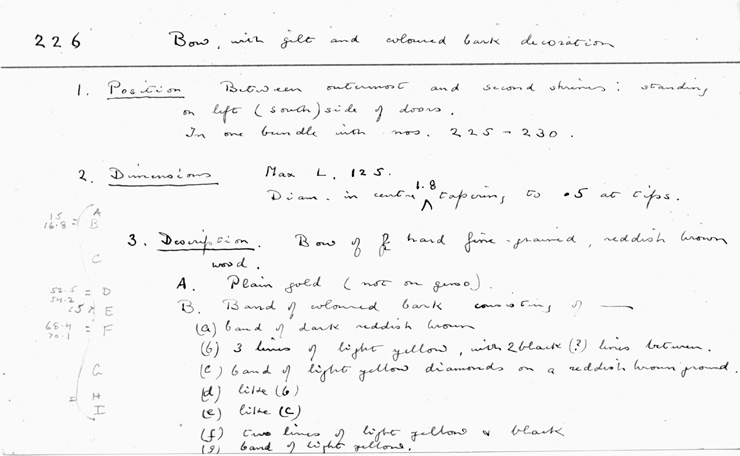 226 Bow, with gilt and coloured bark decoration
1. Position Between outermost and second shrines: standing
on left (south) side of doors.
In one bundle with nos. 225-230.
2. Dimensions Max L. 125.
Diam. in centre 1.8 tapering to .5 at tips.
3. Description. Bow of hard fine-grained, reddish brown
wood.
A. Plain gold (not on gesso).
B. Band of coloured bark consisting of —
(a) band of dark reddish brown
(b) 3 lines of light yellow, with 2 black (?) lines between.
(c) band of light yellow diamonds on a reddish brown ground.
(d) like (b)
(e) like (c)
(f) two lines of light yellow & black
(g) band of light yellow.
A
15
16.8 = B
C
52.5 = D
54.2
E
68.4 = F
70.1
G
= H
I